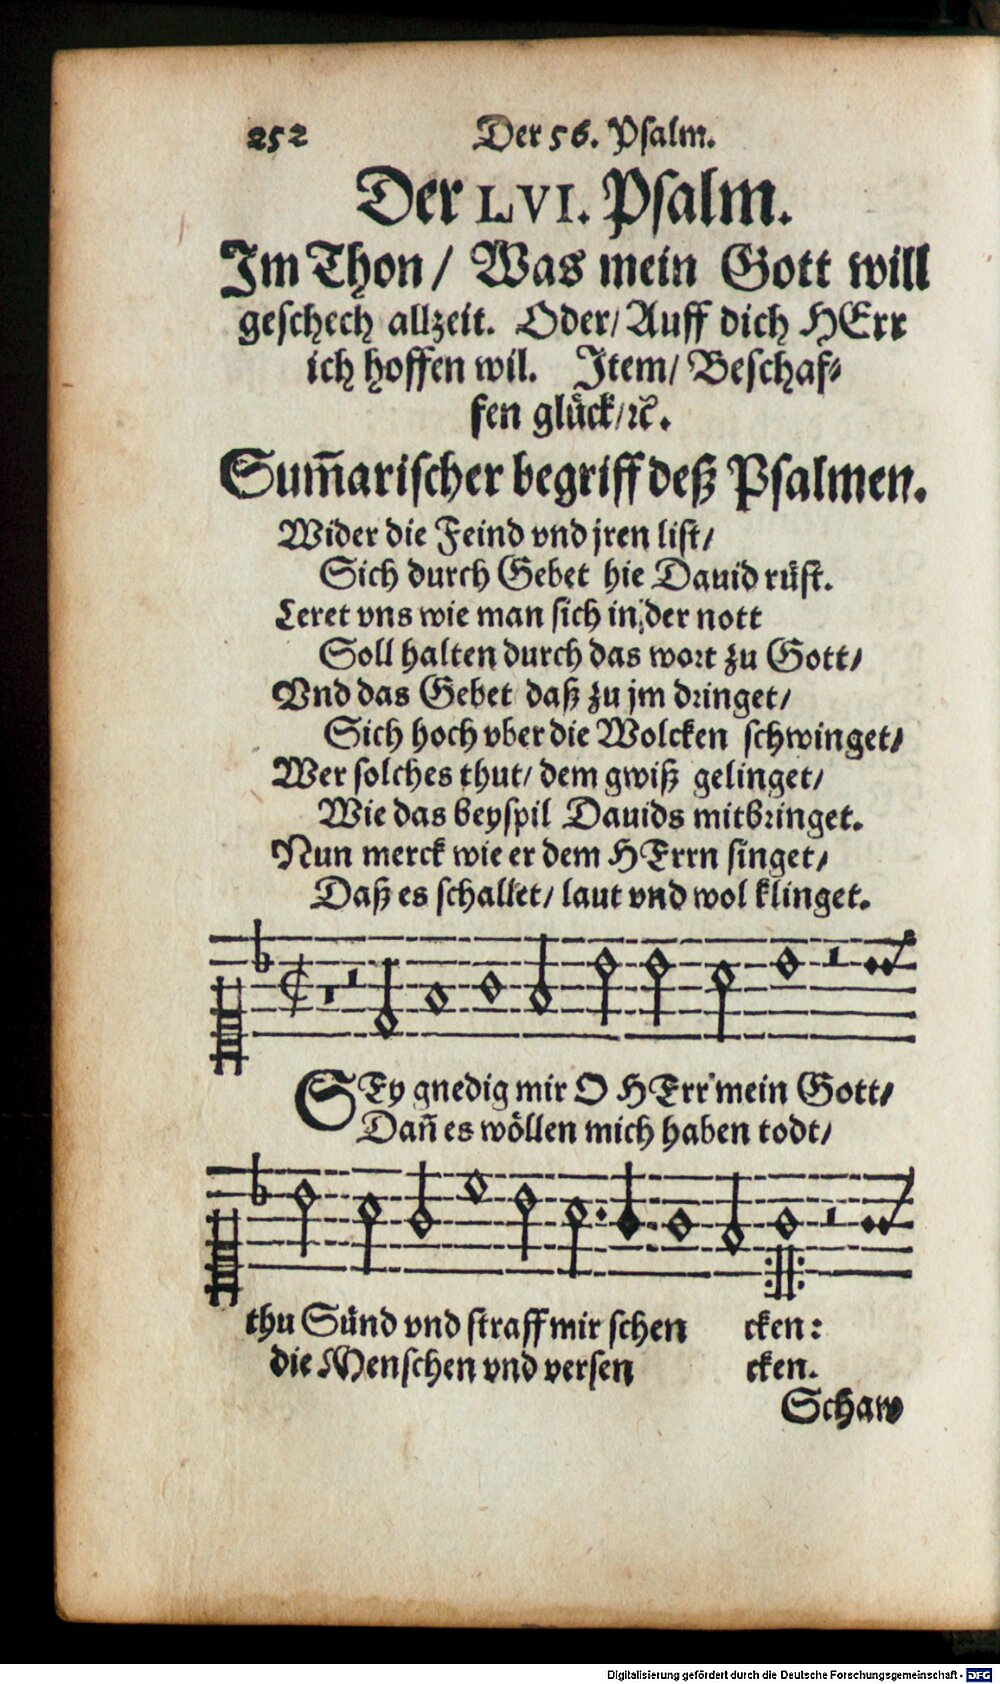 252 Der 56. Psalm.
Der LVI. Psalm.
Im Thon / Was mein Gott will
geschech allzeit. Oder / Auff dich HErr
ich hoffen wil. Item / Beschaf⸗
fen glück / ꝛc̃.
Sum̃arischer begriff deß Psalmen.
Wider die Feind vnd jren list /
Sich durch Gebet hie Dauid rüst.
Leret vns wie man sich in der nott
Soll halten durch das wort zu Gott /
Vnd das Gebet daß zu jm dringet /
Sich hoch vber die Wolcken schwinget /
Wer solches thut / dem gwiß gelinget /
Wie das beyspil Dauids mitbringet.
Nun merck wie er dem HErrn singet /
Daß es schallet / laut vnd wol klinget.
SEy gnedig mir O HErr mein Gott /
Dañ es wöllen mich haben todt /
thu Sünd vnd straff mir schen cken:
die Menschen vnd versen cken.
Schaw
Digitalisierung gefördert durch die Deutsche Forschungsgemeinschaft - DFG